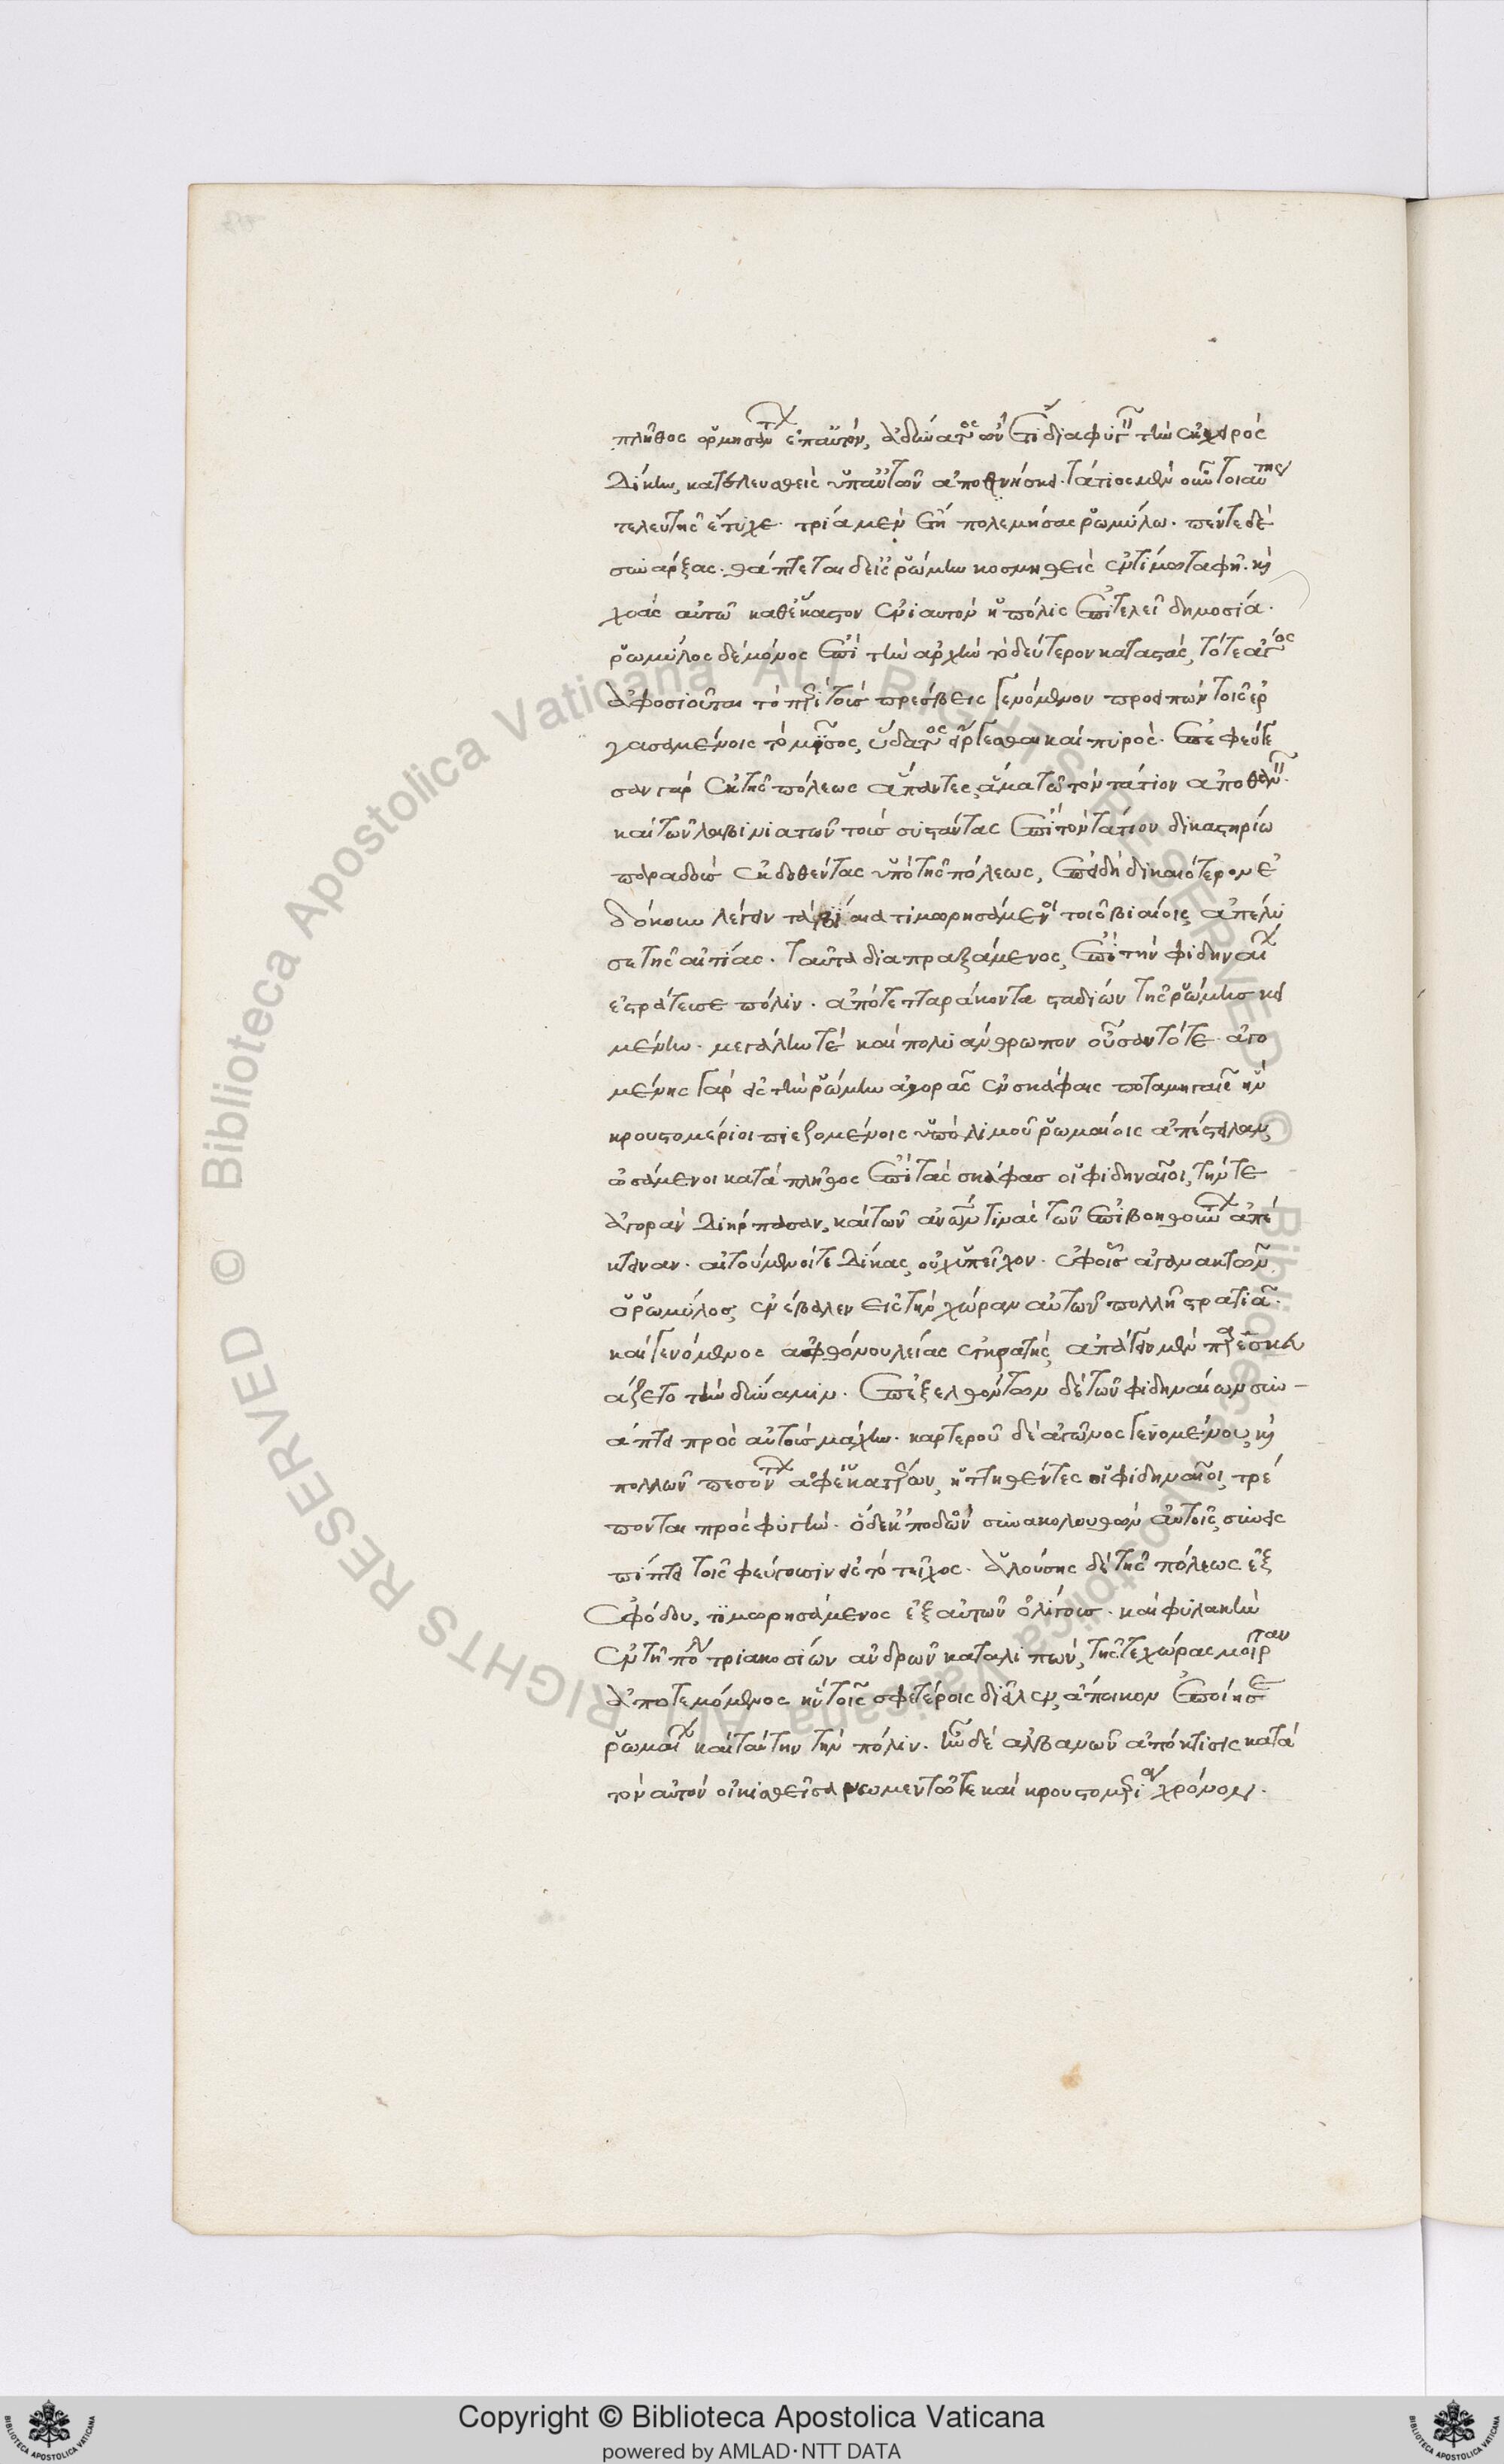 πλῆθος ὥρμησεν ἐπ' αὐτόν, ἀδύνατος ὢν ἔτι διαφυγεῖν τὴν ἐκ χειρὸς
δίκην, καταλευσθεὶς ὑπ' αὐτῶν ἀποθνήσκει. τάτιος μὲν οὖν τοιαύτης
τελευτῆς ἔτυχε. τρία μὲν ἔτη πολεμήσας ῥωμύλω. πέντε δὲ
συνάρξας. θάπτεται δ' εἰς ῥώμην κομισθεὶς ἐντίμω ταφῆ. καὶ
χοὰς αὐτῶ καθ' ἕκαστον ἐνιαυτὸν ἡ πόλις ἐπιτελεῖ δημοσία.
ῥωμύλος δὲ μόνος ἐπὶ τὴν ἀρχὴν τὸ δεύτερον καταστάς, τότε ἄγος
ἀφοσιοῦται τὸ περὶ τοὺς πρέσβεις γενόμενον προειπὼν τοῖς ἐρ
γασαμένοις τὸ μῦσος, ὕδατος εἴργεσθαι καὶ πυρός. ἐπεφεύγε
σαν γὰρ ἐκ τῆς πόλεως ἅπαντες, ἅμα τῶ τὸν τάτιον ἀποθανεῖν.
καὶ τῶν λαβινιατῶν τοὺς συστάντας ἐπὶ τὸν τάτιον δικαστηρίω
παραδοὺς ἐκδοθέντας ὑπὸ τῆς πόλεως, ἐπειδὴ δικαιότερον ἐ
δόκουν λέγειν τὰ βίαια τιμωρησάμενοι τοῖς βιαίοις, ἀπέλυ
σε τῆς αἰτίας. ταῦτα διαπραξάμενος, ἐπὶ τὴν φιδηναίων
ἐστράτευσε πόλιν. ἀπὸ τετταράκοντα σταδίων τῆς ῥώμης κει
μένην. μεγάλην τὲ καὶ πολυάνθρωπον οὖσαν τότε. ἀγο
μένης γὰρ εἰς τὴν ῥώμην ἀγορᾶς ἐν σκάφαις ποταμηγαῖς ἣν
κρουστομέριοι πιεζομένοις ὑπὸ λιμοῦ ῥωμαίοις ἀπέστειλαν,
ὠσάμενοι κατὰ πλῆθος ἐπὶ τὰς σκάφας οἱ φιδηναῖοι, τήν τε
ἀγορὰν διήρπασαν, καὶ τῶν ἀνθρώπων τινὰς τῶν ἐπιβοηθούντων ἀπέ
κτειναν. αἰτούμενοί τε δίκας, οὐχ ὑπεῖχον. ἐφ' οἷς ἀγανακτῶν
ὁ ῥωμύλος, ἐνέβαλεν εἰς τὴν χώραν αὐτῶν πολλῆ στρατιᾶ.
καὶ γενόμενος ἀφθόνου λείας ἐγκρατής, ἀπάγειν μὲν παρεσκευ
άζετο τὴν δύναμιν. ἐπεξελθόντων δὲ τῶν φιδηναίων συν-
άπτει πρὸς αὐτοὺς μάχην. καρτεροῦ δὲ ἀγῶνος γενομένου, καὶ
πολλῶν πεσόντων ἀφ' ἑκατέρων, ἡττηθέντες οἱ φιδηναῖοι, τρέ
πονται πρὸς φυγήν. ὁ δ' ἐκ ποδῶν συνακολουθῶν αὐτοῖς, συνεισ
πίπτει τοῖς φεύγουσιν εἰς τὸ τεῖχος. ἁλούσης δὲ τῆς πόλεως ἐξ
ἐφόδου, τιμωρησάμενος ἐξ αὐτῶν ὀλίγους. καὶ φυλακὴν
ἐν τῆ πόλει τριακοσίων ἀνδρῶν καταλιπών, τῆς τε χώρας μοῖραν
ἀποτεμόμενος ἣν τοῖς σφετέροις διεῖλεν, ἄποικον ἐποίησε
ῥωμαίων καὶ ταύτην τὴν πόλιν. ἦν δὲ ἀλβανῶν ἀπόκτισις κατὰ
τὸν αὐτὸν οἰκισθεῖσα νωμεντῶ τε καὶ κρουστομερία χρόνον.